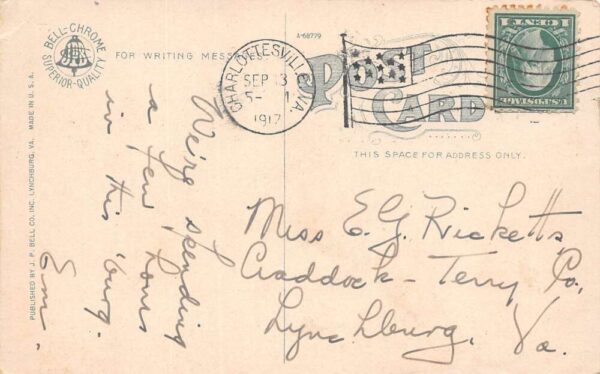 BELL-CHROME
SUPERIOR-QUALITY
FOR WRITING MESSAGES
A-68779
POST
CARD
THIS SPACE FOR ADDRESS ONLY.
CHARLOTTESVILLE, VA.
SEP 13
5-
1917
U.S. POSTAGE
1 CENT 1
MADE IN U.S.A.
PUBLISHED BY J. P. BELL CO. INC. LYNCHBURG, VA.
We're spending
a few hours
in this 'burg.
Em.
Miss E. G. Ricketts
Craddock-Terry Co,
Lynchburg, Va.